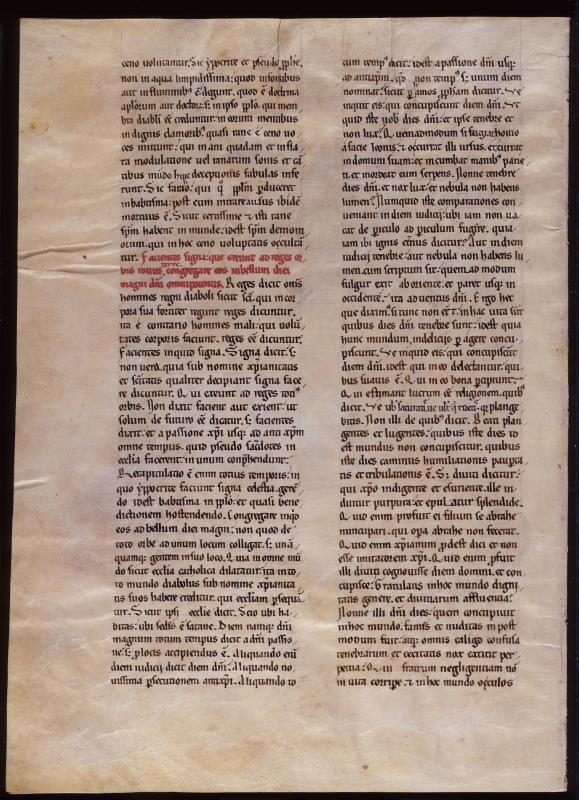 ceno volutantur. Sic ypocrite et pseudo pphe
non in aqua limpidissima: quod in fontibus
aut in fluminibus ę degunt. quod ē doctrina
aplorum aut doctorum: s; in ipso pplo. qui mem
bra diaboli eē creduntur: in eorum mentibus
in dignis clamoribus quasi rane ē ceno uo
ces mittunt: qui in ani quadam et infla
ta modulatione uel ranarum sonis et cā
tibus
runt. Sic factio: qui plēm produceret
in babtisma: post eum mitrare ausus ibidē
mortuus ē. Sicut certissime et isti rane
spm habent in munde: idest spm demoni
orum. qui in hoc ceno uoluptatis occulta
tur. Facientes signa: que exeunt ad reges or
bis totius terre. congregare eos inbellum diei
magni dni omnipotentis. Reges dicit omīs
homines regni diaboli sicut scā. qui in cor
pora sua fortiter regunt reges dicuntur.
ita e contrario homines mali: qui uolū
tates corporis faciunt. reges eē dicuntur.
Facientes inquid signa. Signa dicit: s;
non uera. quia sub nomine xpianitatis
et scītatis qualiter decipiant signa face
re dicuntur. Qui exeunt ad reges toti
orbis. Non dixit facient aut exient. ut
solum de futuro eē dicatur. s; facientes
dixit. et a passione xpi usq; ad antixpm
omne tempus. quid pseudo sacdotes in
ecclia facerent. in unum conphendunt.
Recapitulatio ē enim totius temporis: in
quo ypocrite faciunt signa celestia. gerē
do idest babtisma in pplo: et quasi bene
dictionem hostendendo. Congregare inqd
eos ad bellum diei magni: non quod de
toto orbe ad unum locum colligat. s; unā
quamq; gentem in suo loco. Quia in omne mū
do sicut ecclia catholica dilatatur: ita in to
to mundo diabolus sub nomine xpianita
tis suos habere creditur. qui eccliam psequā
tur. Sicut ipsi ecclie dicit. Scio ubi ha
bitas: ubi sedis ē satane. Diem namq; dni
magnum totum tempus dicit a dni passio
ne: s; p locis accipiendus ē. Aliquando eni
diem iudicii dicit diem dni: Aliquando no
uissima psecutionem antixpi. Aliquando to
cum tempus dicit: idest a passione dni usq;
ad antixpm. non tempus s; unum diem
nominat: sicut p amos ppham dicitur. Ve
inquit eis: qui concupiscunt diem dni. Vt
quid iste uobis dies dni: et ipse tenebre et
non lux? Quemadmodum si fugiat homo
a facie leonis: et occurrat illi ursus. et currat
in domum suam: et incumbat manibus parie
ti. et mordeat eum serpens. Nonne tenebre
dies dni. et nox lux: et nebula non habens
lumen? Numquid iste comparationes con
ueniant in diem iudicii: ubi iam non ua
cat de piculo ad piculum fugire. quia
iam ibi ignis eternus dicitur? Aut in diem
iudicii tenebre aut nebula non habens lu
men. cum scriptum sit: quem ad modum
fulgur exit ab oriente. et paret usq; in
occidente: ita aduentus dni. Ergo hec
que diximus si tunc non et in hac uita sūt
quibus dies dni tenebre sunt: idest quia
hunc mundum. indeliciis p agere concu
piscunt. Ve inquid eis: qui concupiscūt
diem dni. idest qui in eo delectantur. qui
bus suauis ē. Qui in eo bona percipiunt.
Qui estimant lucrum eē religionem. quibus
dicit. Ve uobis saturati. ue uobis qui ridetis. plange
bitis. Non illi de quibus dicit. Beati plan
gentes et lugentes: quibus iste dies id
est mundus non concupiscitur. quibus
iste dies caminus humiliationis pauperta
tis et tribulationis ē. S; diuiti dicitur:
qui xpo indigente et esuriente. ille in
duitur purpura: et epulatur splendide.
Quid enim profuit ei filium se abrahe
nuncupari. qui opa abrahe non fecerat.
Quid enim xpianum pdest dici et non
esse imitatorem xpi. Quid enim pfuit
illi diuiti cognouisse diem domini. et con
cupisce: et gratulans in hoc mundo digni
tatis genere. et diuitiarum affluentia.
Nonne illi dni dies: quem concupiuit
in hoc mundo. famis et nuditas in post
modum fuit: atq; omnis caligo confusa
tenebrarum. et cecitatis nox extitit per
petua. Qui fratrum negligentiam nō
in uita corripe. et in hoc mundo oculos